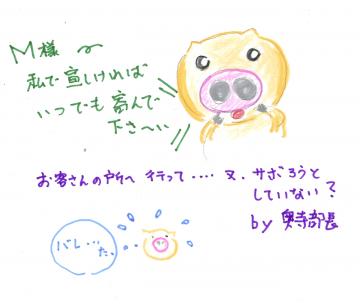 M様 〜
私で宜しければ
いつでも喜んで
下さ〜い
お客さんの所へ 行って‥‥ 又、サボろうと
していない?
by 奥寺部長
バレ‥た。